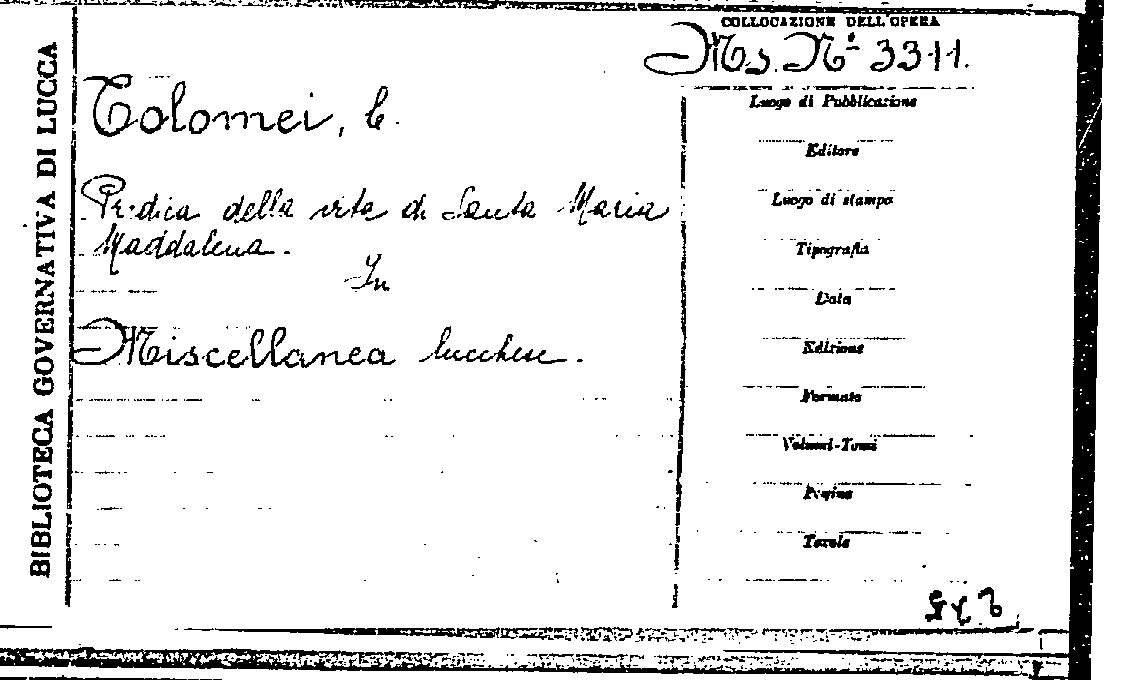 BIBLIOTECA GOVERNATIVA DI LUCCA
COLLOCAZIONE DELL'OPERA
Ms. Nº 3311.
Tolomei, C.
Predica della vita di Santa Maria
Maddalena.
In
Miscellanea lucchese.
Luogo di Pubblicazione
Editore
Luogo di stampa
Tipografia
Data
Edizione
Formato
Volumi-Tomi
Pagine
Tavole